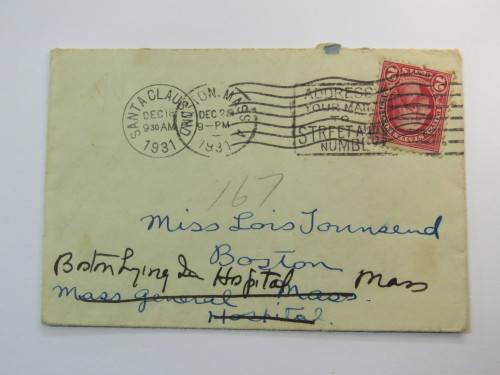 SANTA CLAUS IND.
DEC 18
930 AM
1931
TON, MASS
DEC 28
9-PM
1931
ADDRESS
YOUR MAIL
TO
STREET AND
NUMBER
2 2
167
Miss Lois Townsend
Boston
Boston Lying In Hospital Mass
Mass General Mass.
Hospital.